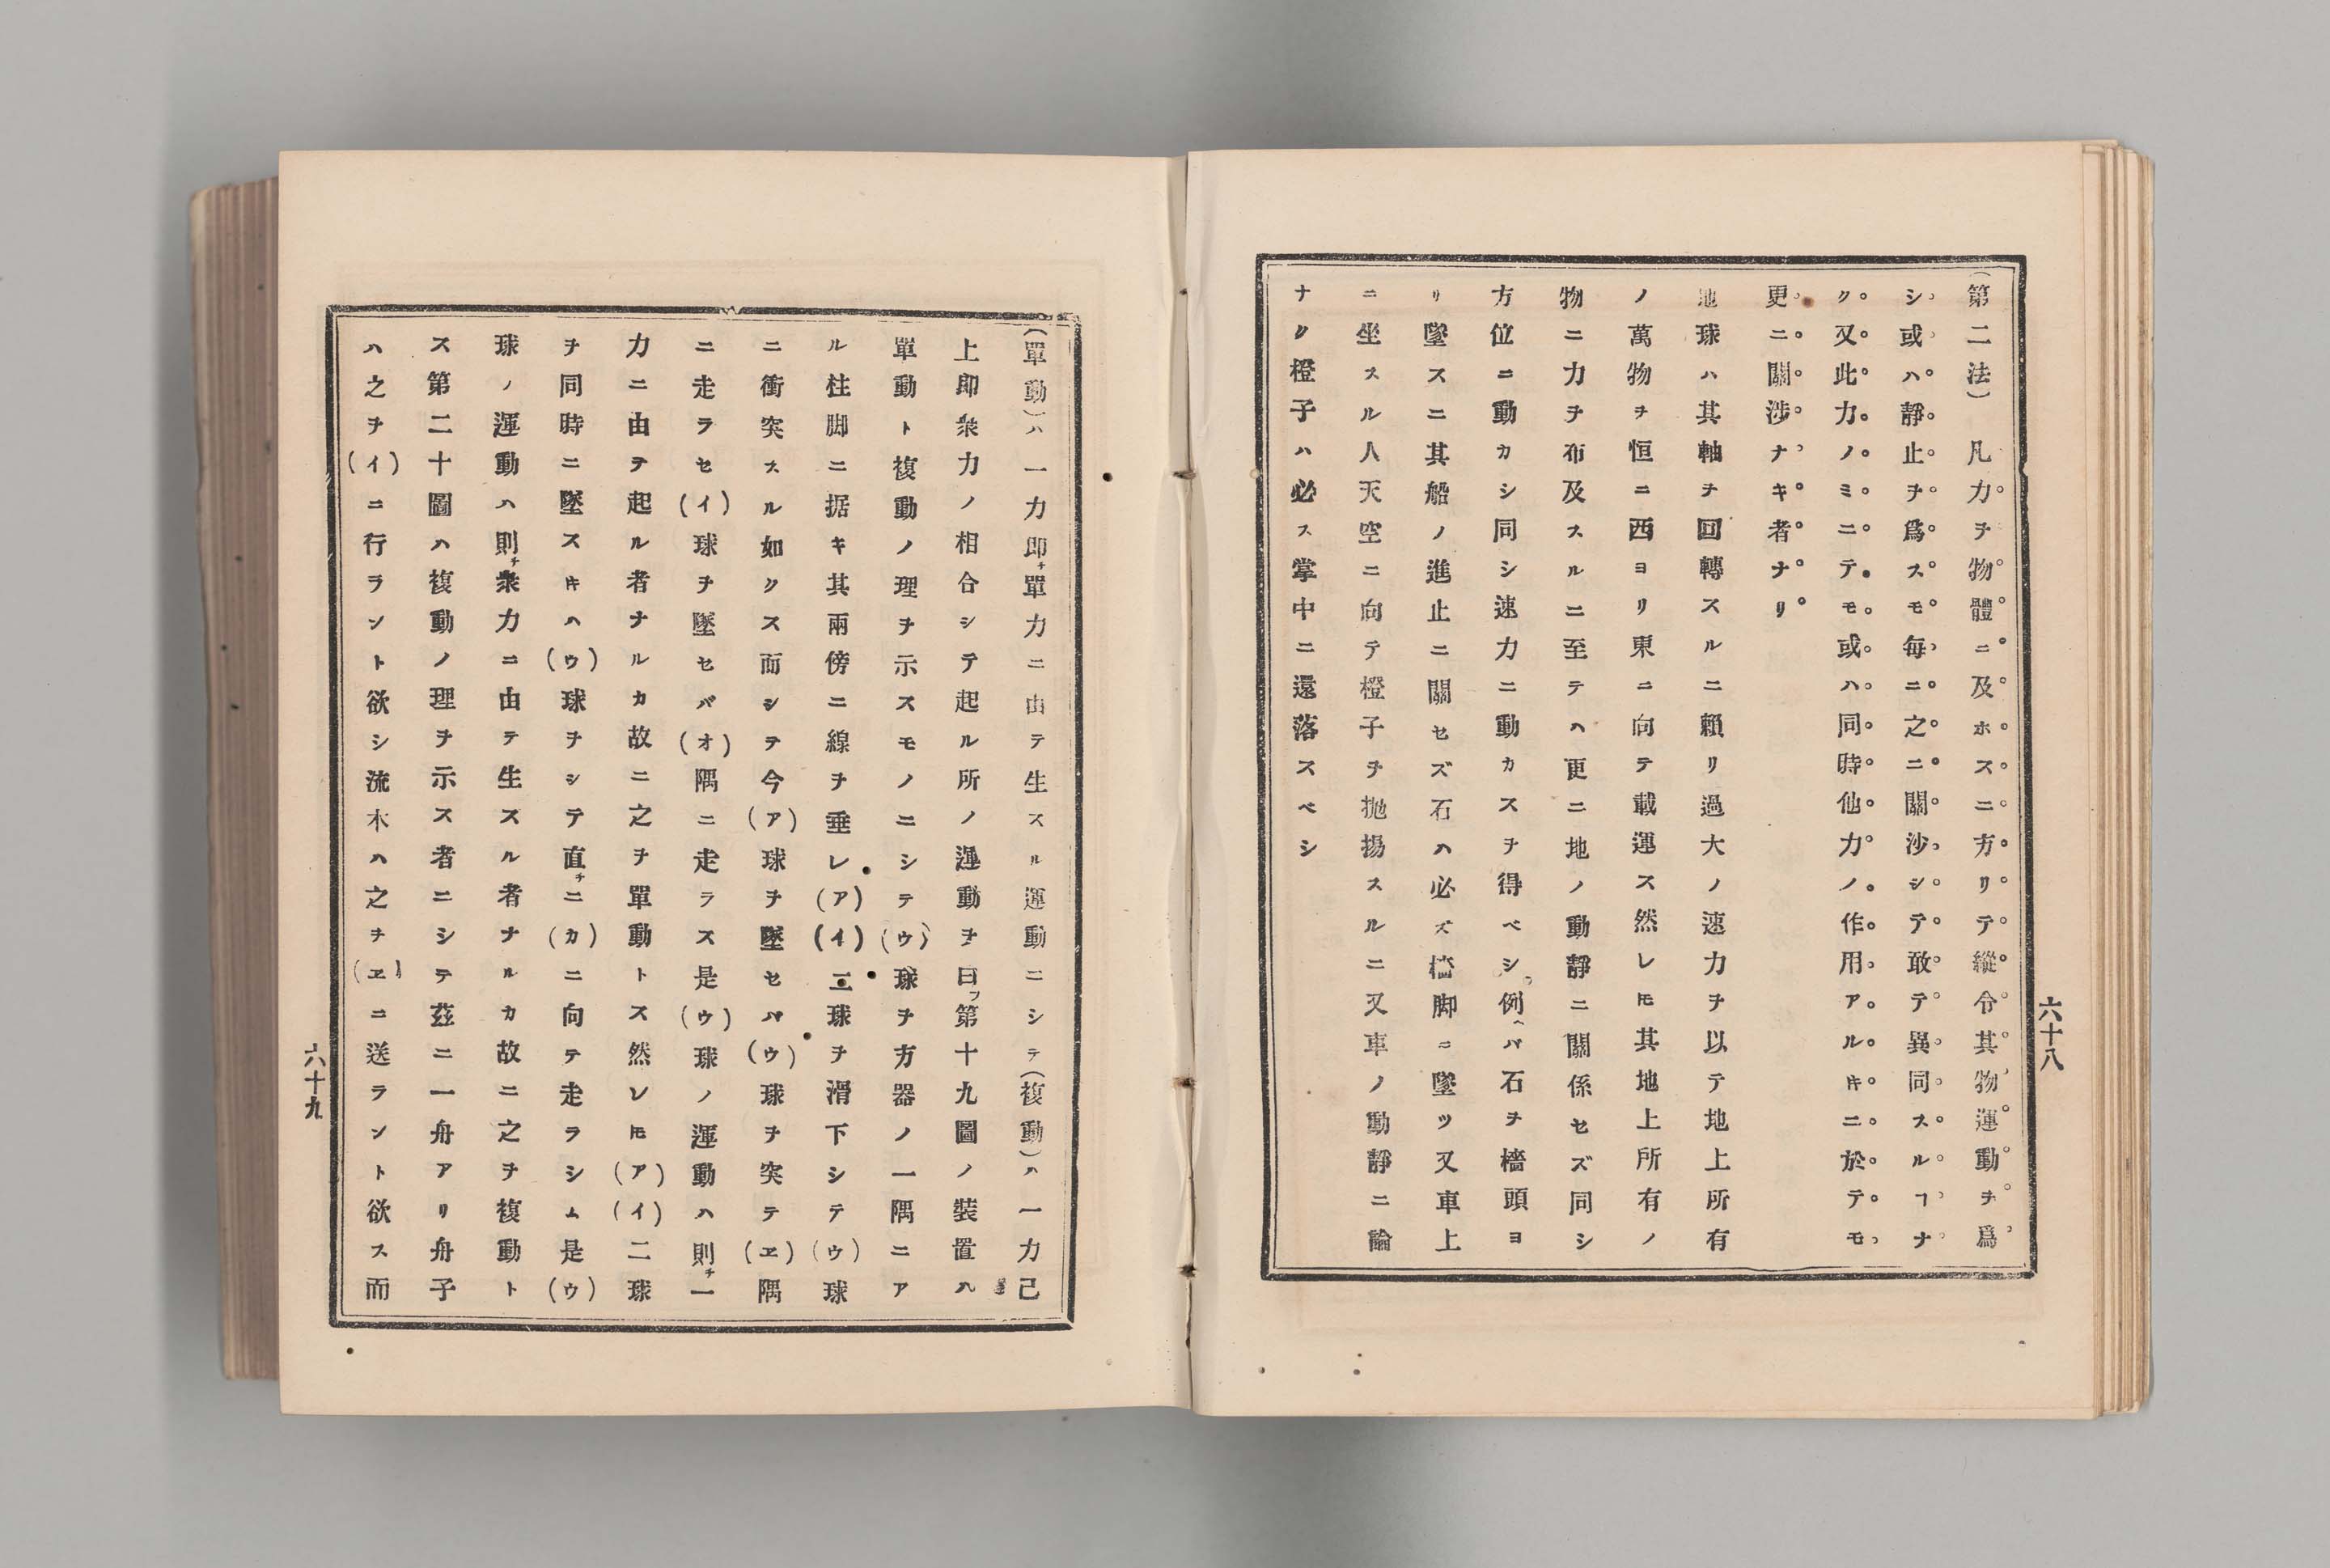 六十八
(第二法)　凡力ヲ物體ニ及ホスニ方リテ縱令其物運動ヲ爲
シ或ハ靜止ヲ爲スモ毎ニ之ニ關渉シテ敢テ異同スルヿナ
ク又此力ノミニテモ或ハ同時他力ノ作用アルキニ於テモ
更ニ關涉ナキ者ナリ
地球ハ其軸ヲ回轉スルニ賴リ過大ノ速力ヲ以テ地上所有
ノ萬物ヲ恒ニ西ヨリ東ニ向テ載運ス然レ𪜈其地上所有ノ
物ニ力ヲ布及スルニ至テハ更ニ地ノ動靜ニ關係セズ同シ
方位ニ動カシ同シ速力ニ動カスヲ得ベシ例ヘバ石ヲ檣頭ヨ
リ墜スニ其船ノ進止ニ關セズ石ハ必ズ檣脚ニ墜ツ又車上
ニ坐スル人天空ニ向テ橙子ヲ抛揚スルニ又車ノ動靜ニ論
ナク橙子ハ必ス掌中ニ還落スベシ
(單動)ハ一力即チ單力ニ由テ生スル運動ニシテ(複動)ハ一力已
上即衆力ノ相合シテ起ル所ノ運動ヲ曰フ第十九圖ノ裝置ハ
單動ト複動ノ理ヲ示スモノニシテ(ウ)球ヲ方器ノ一隅ニア
ル柱脚ニ据キ其兩傍ニ線ヲ垂レ(ア)(イ)二球ヲ滑下シテ(ウ)球
ニ衝突スル如クス而シテ今(ア)球ヲ墜セバ(ウ)球ヲ突テ(ヱ)隅
ニ走ラセ(イ)球ヲ墜セバ(オ)隅ニ走ラス是(ウ)球ノ運動ハ則チ一
力ニ由テ起ル者ナルカ故ニ之ヲ單動トス然レ𪜈(ア)(イ)二球
ヲ同時ニ墜スキハ(ウ)球ヲシテ直チニ(カ)ニ向テ走ラシム是(ウ)
球ノ運動ハ則チ衆力ニ由テ生スル者ナルカ故ニ之ヲ複動ト
ス第二十圖ハ複動ノ理ヲ示ス者ニシテ茲ニ一舟アリ舟子
ハ之ヲ(イ)ニ行ラント欲シ流水ハ之ヲ(ヱ)ニ送ラント欲ス而
六十九